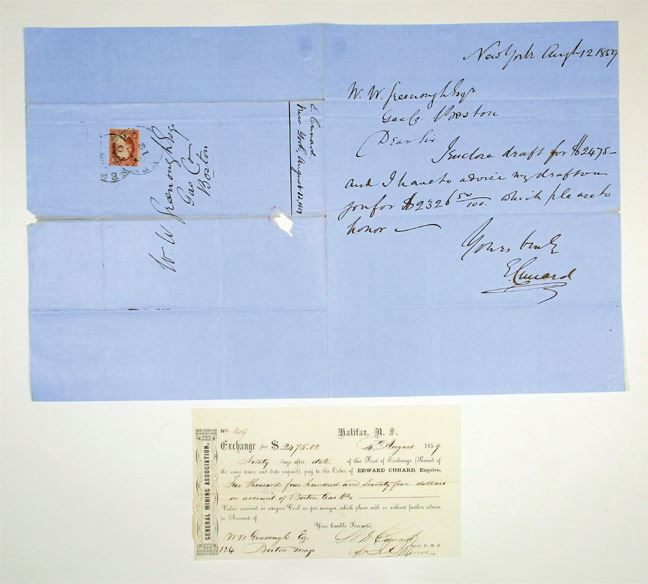 New York Augt 12 1859
W. W. Greenough Esqr
Gas Co Boston
Dear Sir
I enclose draft for $2475-
and I have to advice my draft on
you for $2326 50/100. which please to
honor
Yours truly
E. Cunard
E. Cunard
New York, August 12, 1859
W. W. Greenough Esq.
Gas Co
Boston
GENERAL MINING ASSOCIATION.
No.
Halifax, N. S.
Exchange for $2475.00
4th August 1859
Ninety days after date of this First of Exchange (Second of
the same tenor and date unpaid), pay to the Order of EDWARD CUNARD, Esquire,
Two thousand four hundred and seventy five dollars
on account of Boston Gas Co
Value received in Coal as per margin, which place with or without further advice
to Account of
Your humble Servants,
W W Greenough Esq
124 Boston Mass